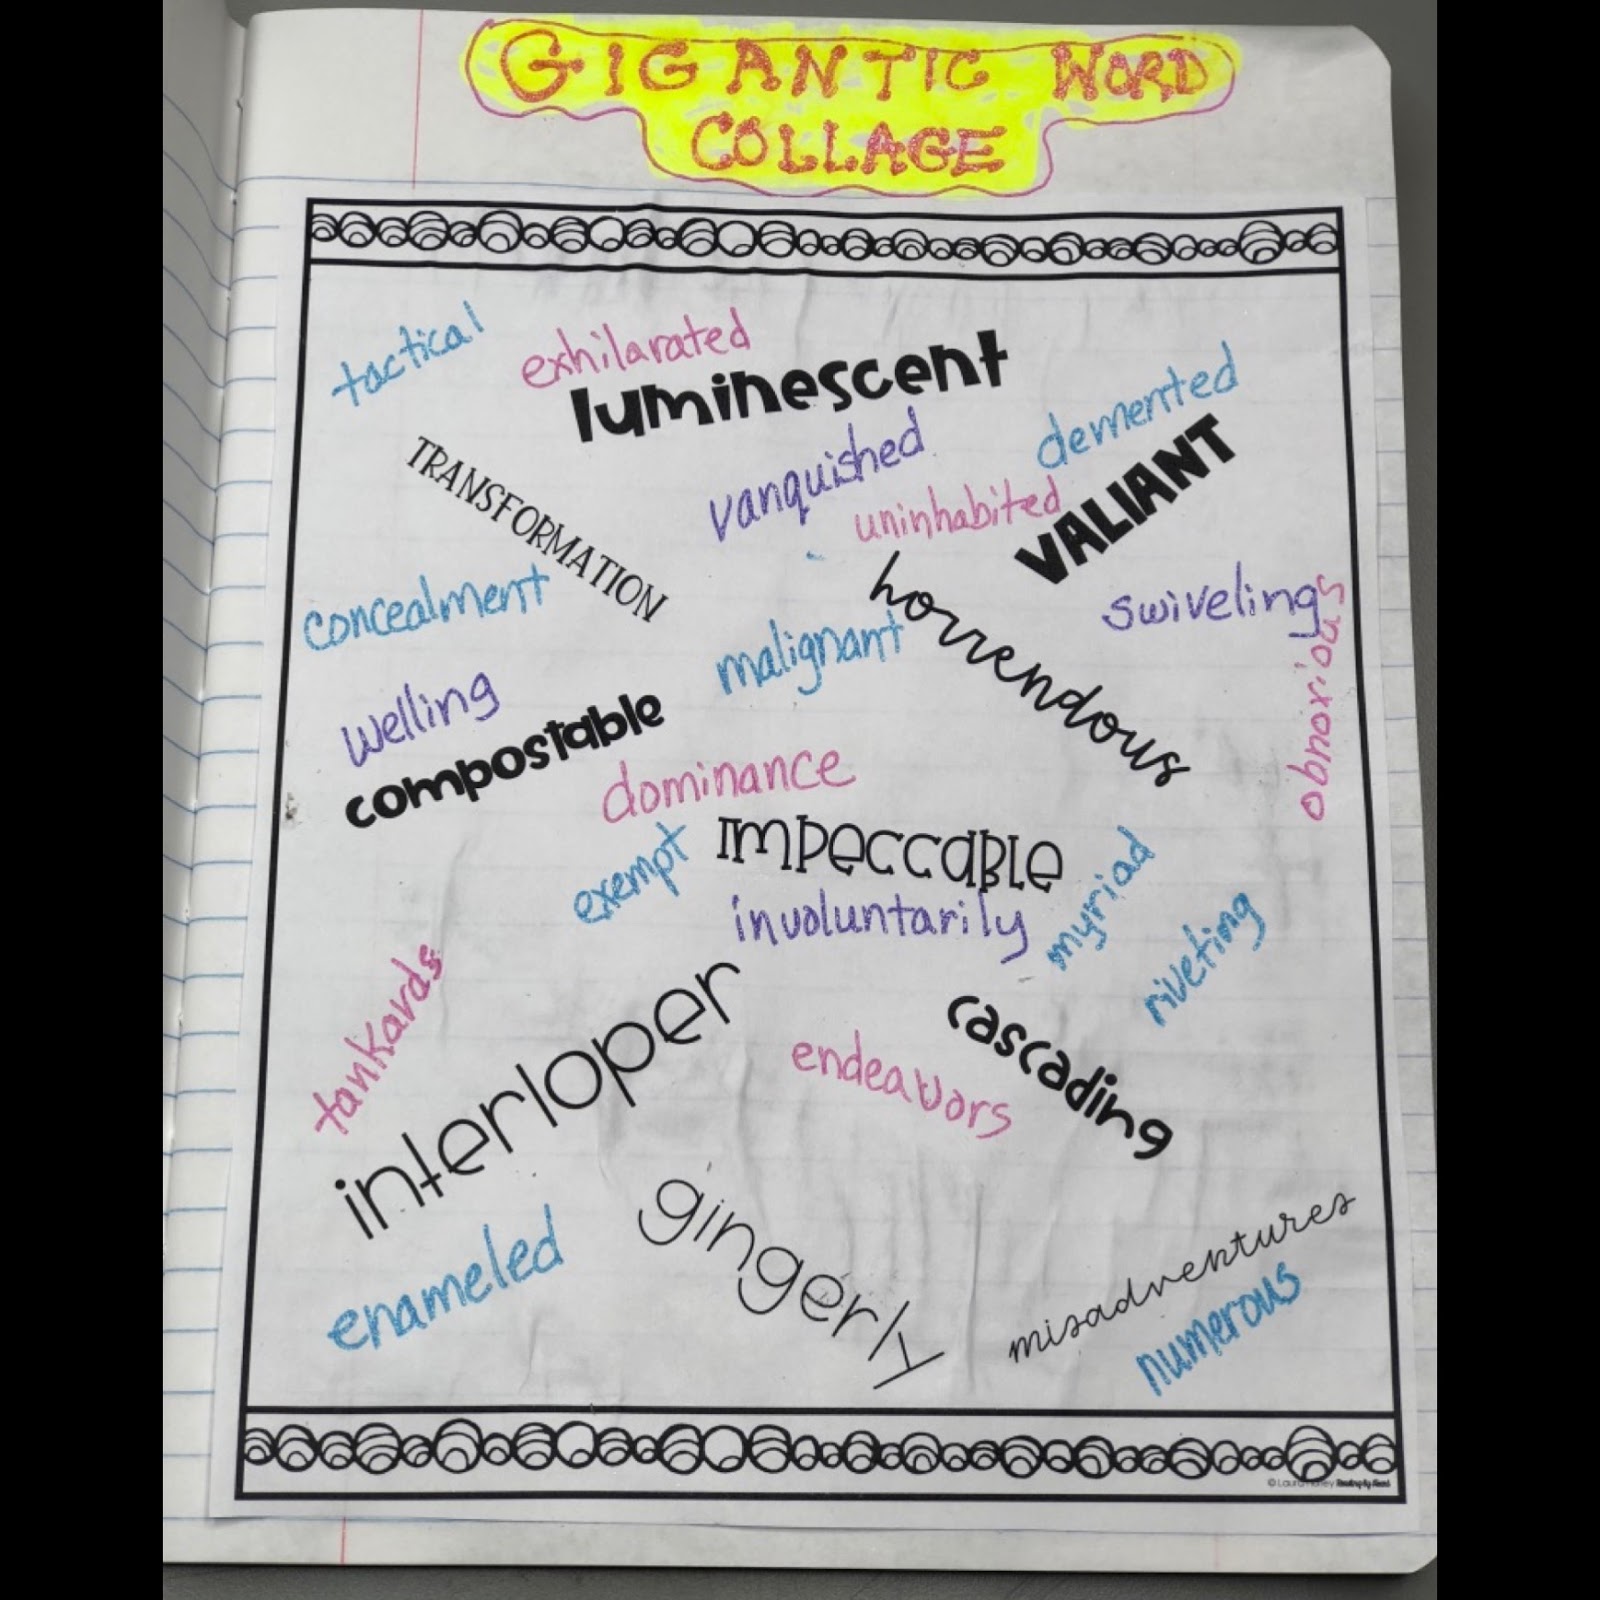 GIGANTIC WORD
COLLAGE
tactical
exhilarated
luminescent
demented
TRANSFORMATION
vanquished
uninhabited
VALIANT
concealment
horrendous
swiveling
malignant
obnoxious
welling
compostable
dominance
exempt
IMPECCABLE
involuntarily
myriad
riveting
tankards
interloper
cascading
endeavors
enameled
gingerly
misadventures
numerous